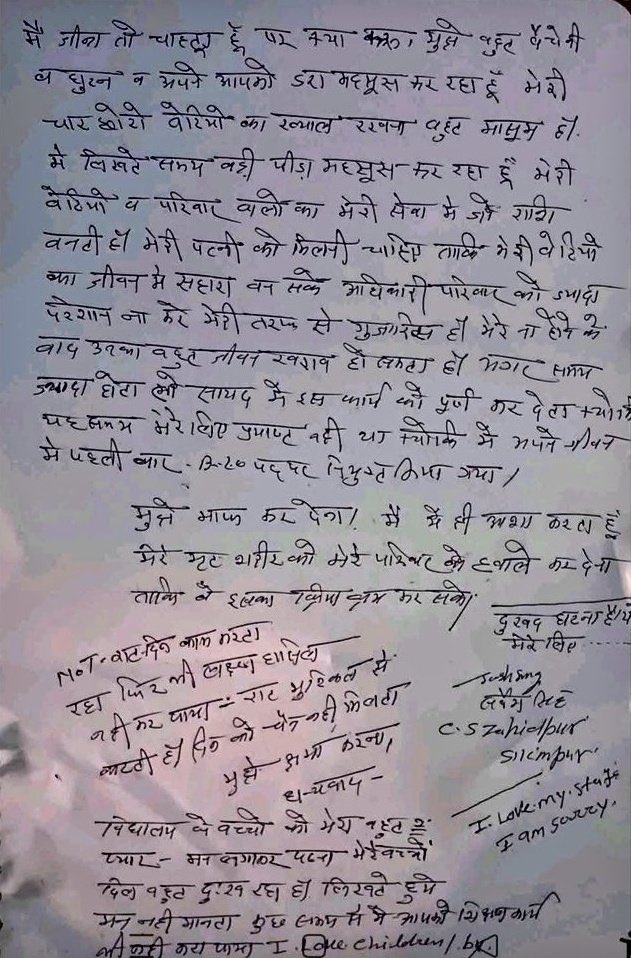 मैं जीना तो चाहता हूँ पर क्या करू, मुझे बहुत बैचेनी
व घुटन व अपने आपको डरा महसूस कर रहा हूँ मेरी
चार छोटी बेटियो का ख्याल रखना बहुत मासूम है।
मै लिखते समय वही पीड़ा महसूस कर रहा हूँ मेरी
बेटियो व परिवार वालो का मेरी सेवा मे जो राशि
बनती हो मेरी पत्नी को मिलनी चाहिए ताकि मेरी बेटियो
का जीवन मे सहारा बन सके अधिकारी परिवार को ज्यादा
परेशान ना करे मेरी तरफ से गुजारिस है। मेरे ना होने के
बाद उनका बहुत जीवन खराब हो सकता है। अगर समय
ज्यादा होता तो सायद मै इस कार्य को पूर्ण कर देता क्योंकि
यह समय मेरे लिए प्रयाप्ट नही था क्योकि मै अपने जीवन
मे पहली बार पद पर नियुक्त किया गया।
मुझे माफ कर देना। मै ये ही आशा करता हूँ
मेरे मृत शरीर को मेरे परिवार के हवाले कर देना
ताकि वे इसका क्रिया क्रम कर सके।
दुखद घटना है ये
मेरे लिए
NoT- रात-दिन काम करता
रहा फिर भी लक्ष्य हासिल
नही कर पाया - रात मुश्किल से
कटती है। दिन को चैन नही मिलता
मुझे क्षमा करना,
धन्यवाद -
सिंह
C.S Zahidpur
I. Love. my. Staff
I am sorry.
विद्यालय के बच्चो को मेरा बहुत २
प्यार - मन लगाकर पढना मेरे बच्चो
दिल बहुत दुःख रहा है। लिखते हुये
मन नही मानता कुछ समय से मै आपको शिक्षण कार्य
भी नही करा पाया I. Love children / by